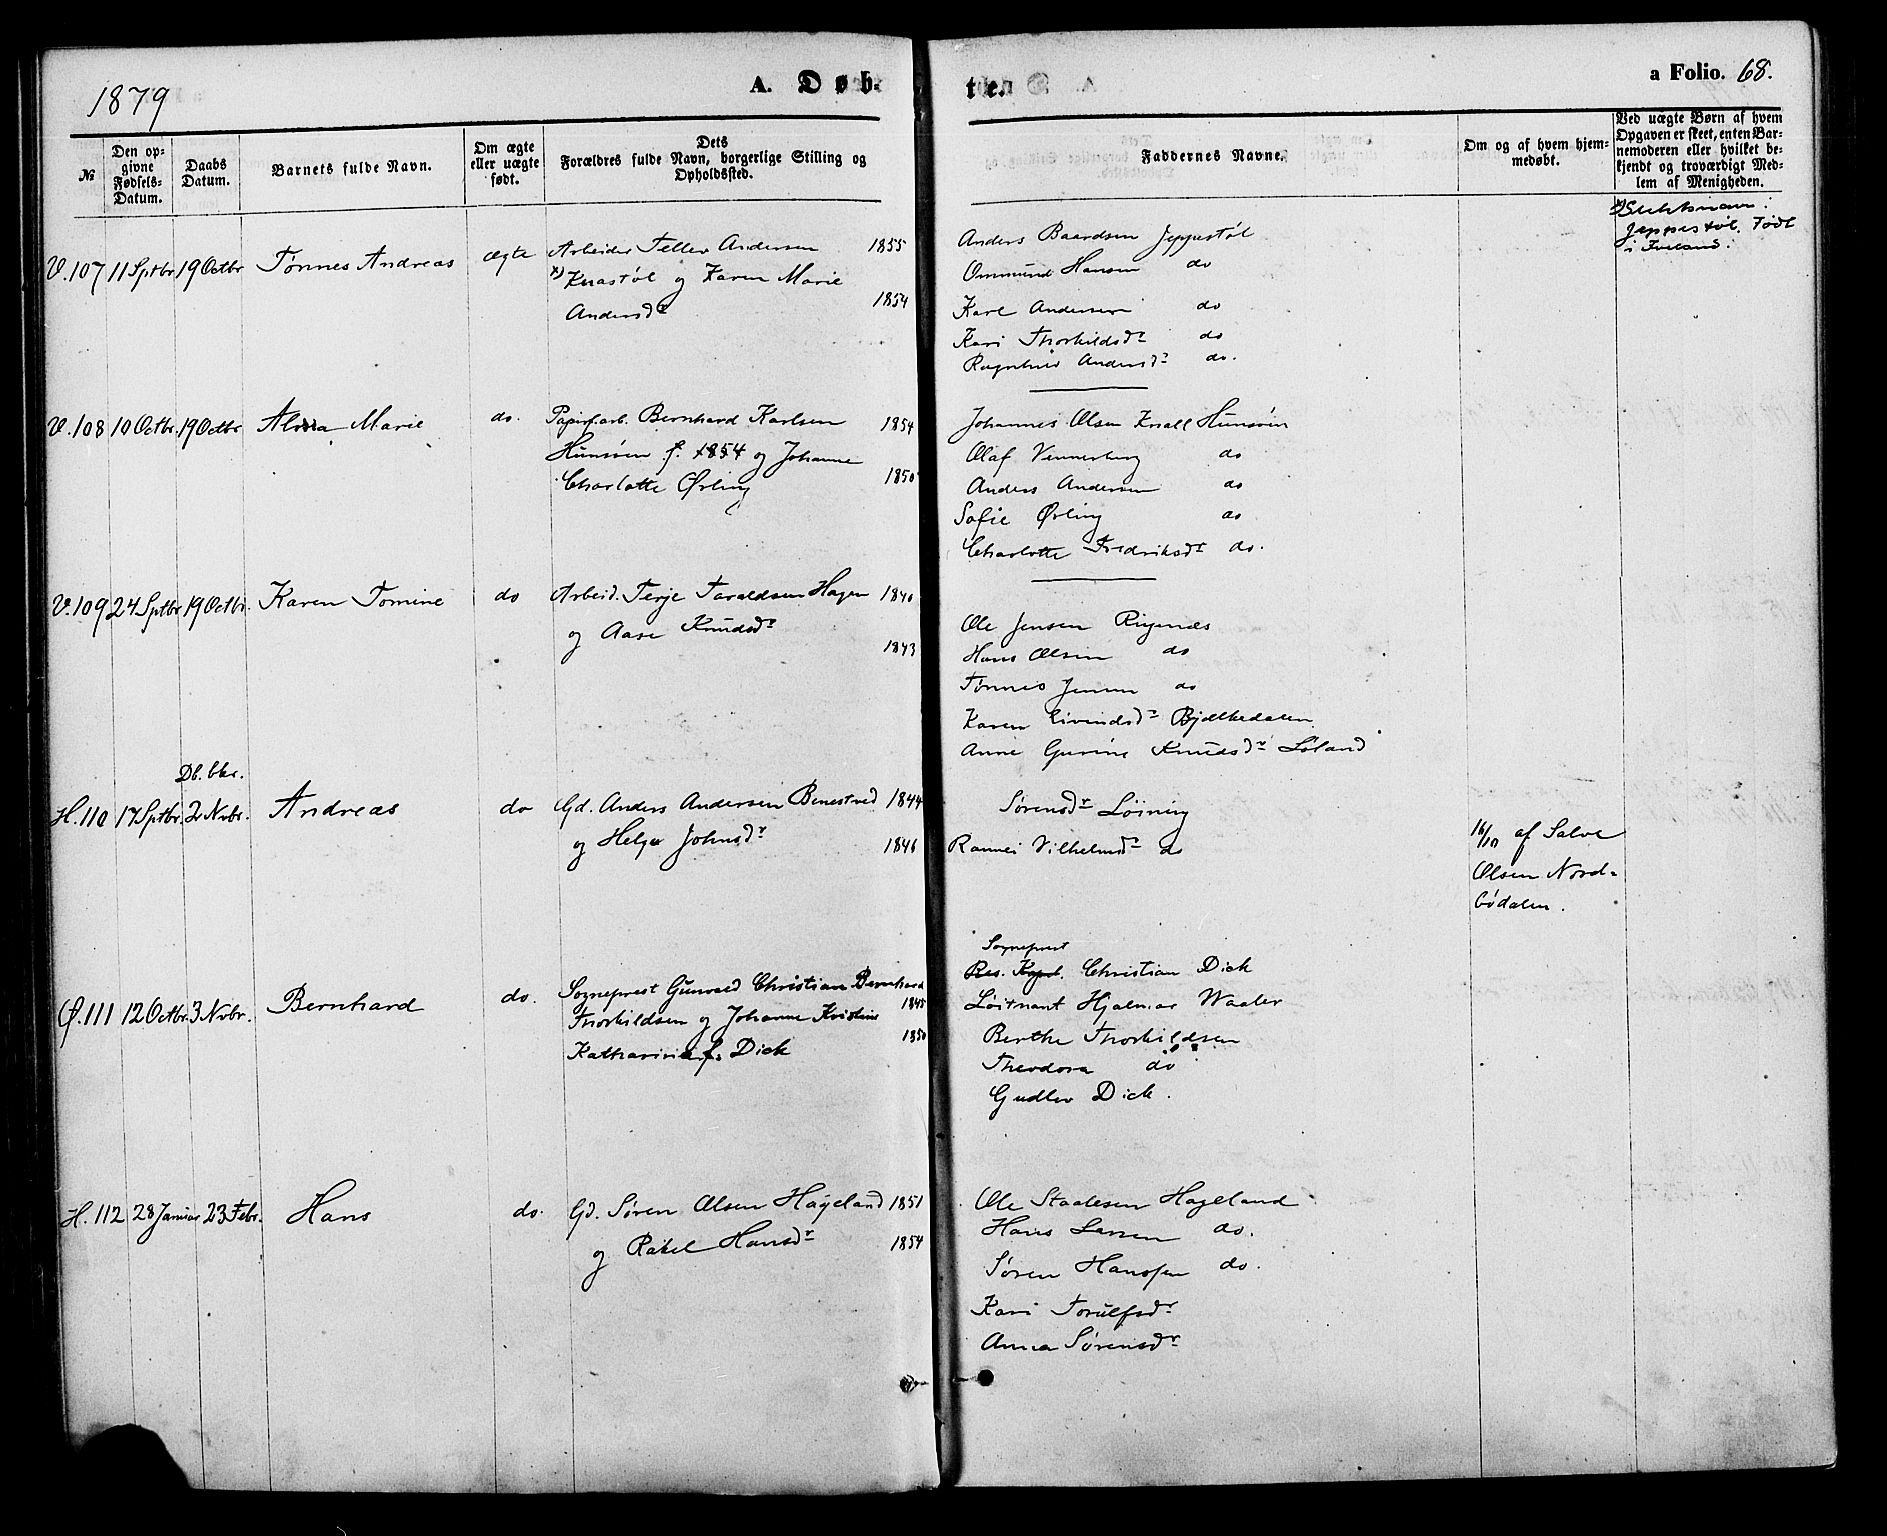 1879
A. Døb-
te.
a Folio. 68.
№
Den op-
givne
Fødsels-
Datum.
Daabs
Datum.
Barnets fulde Navn.
Om ægte
eller uægte
født.
Dets
Forældres fulde Navn, borgerlige Stilling og
Opholdssted.
Faddernes Navne.
Om og af hvem hjem-
medøbt.
Ved uægte Børn af hvem
Opgaven er skeet, enten Bar-
nemoderen eller hvilket be-
kjendt og troværdigt Med-
lem af Menigheden.
V. 107 11 Sptbr. 19 Octbr. Tønnes Andreas ægte Arbeider Tellev Andersen 1855
x) Knastøl og Karen Marie
1854
Andersdr
Anders Baardsen Jeppestøl
Ommund Hansen do
Karl Andersen do
Kari Thorkildsdr do
Ragnhild Andersdr do.
x) Slektsnavn:
Jeppestøl. Født
i Iveland.
V. 108 10 Octbr. 19 Octbr. Alma Marie do. Papirf.arb. Bernhard Karlsen 1854
Hunsøen f. 1854 og Johanne
1850
Charlotte Ørling
Johannes Olsen Knall Hunsøen
Olaf Vennerberg do
Anders Andersen do
Sofie Ørling do
Charlotte Fredriksdr do.
V. 109 24 Sptbr. 19 Octbr. Karen Tomine do Arbeid. Terje Taraldsen Hagen 1840
og Aase Knudsdr
1843
Ole Jensen Rigenæs
Hans Olsen do
Tønnes Jensen do
Karen Eivindsdr Bjelkedalen
Anne Gurine Knudsdr Løland
Db. bkr.
H. 110 17 Sptbr. 2 Nvbr. Andreas do Gd. Anders Andersen Benestved 1844
og Helga Johnsdr 1846
Sørensdr Løining
Rannei Vilhelmsdr do
16/10 af Salve
Olsen Nord-
bødalen.
Ø. 111 12 Octbr. 3 Nvbr. Bernhard do. Sogneprest Gunvald Christian Bernhard
1845
Thorkildsen og Johanne Kristine
1850
Katharina f. Dick
Sogneprest
Res. Kapel. Christian Dick
Løitnant Hjalmar Waaler
Berthe Thorkildsen
Theodora do
Gudlev Dick.
H. 112 28 Januar 23 Febr. Hans do. Gd. Søren Olsen Hageland 1851
og Rakel Hansdr 1854
Ole Staalesen Hageland
Hans Larsen do.
Søren Hanssen do.
Kari Torulfsdr
Anna Sørensdr